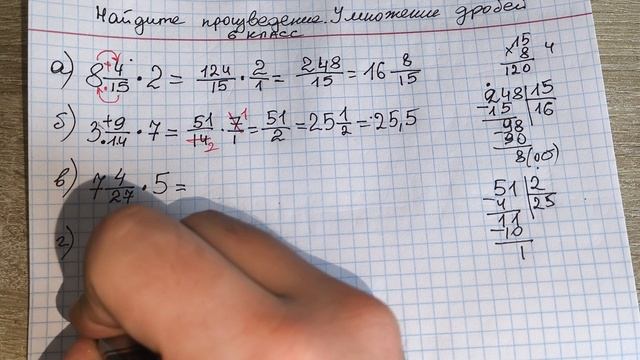 Найдите произведение. Умножение дробей
6 класс
а) 8 4/15 · 2 = 124/15 · 2/1 = 248/15 = 16 8/15
б) 3 9/14 · 7 = 51/14 · 7/1 = 51/2 = 25 1/2 = 25,5
в) 7 4/27 · 5 =
г)
15 4
× 8
120
248 | 15
- 15 | 16
98
- 90
8 (ост)
51 | 2
- 4 | 25
11
- 10
1